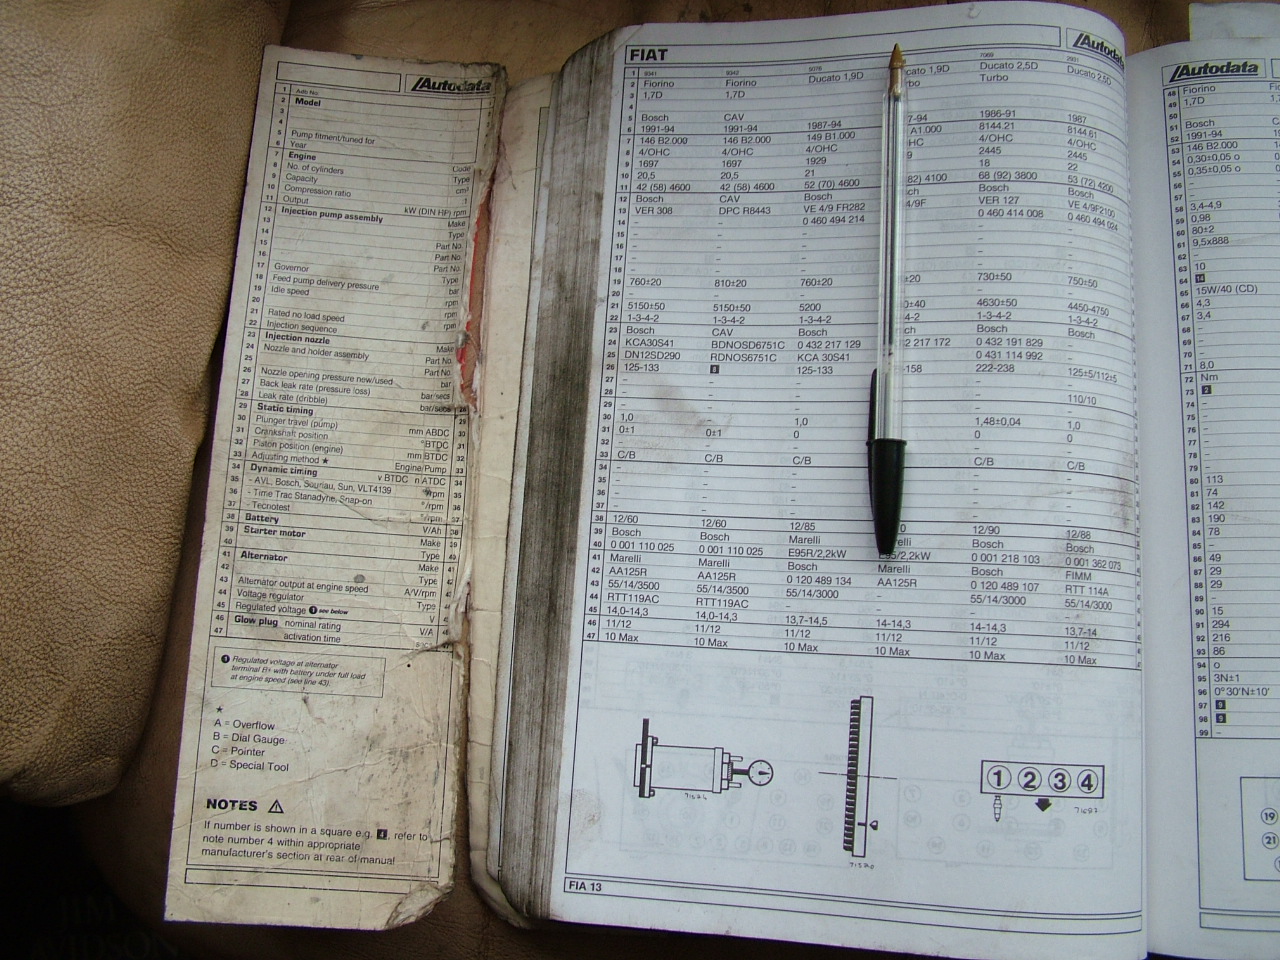 Autodata
1 Adb No.
2 Model
3
4
5 Pump fitment/tuned for
6 Year
7 Engine Code
8 No. of cylinders Type
9 Capacity cm³
10 Compression ratio
11 Output kW (DIN HP) rpm
12 Injection pump assembly Make
13 Type
14 Part No.
15 Part No.
16 Part No.
17 Governor Type
18 Feed pump delivery pressure bar
19 Idle speed rpm
20 rpm
21 Rated no load speed rpm
22 Injection sequence
23 Injection nozzle Make
24 Nozzle and holder assembly Part No.
25 Part No.
26 Nozzle opening pressure new/used bar
27 Back leak rate (pressure loss) bar/secs
28 Leak rate (dribble) bar/secs
29 Static timing
30 Plunger travel (pump) mm ABDC
31 Crankshaft position °BTDC
32 Piston position (engine) mm BTDC
33 Adjusting method ★ Engine/Pump
34 Dynamic timing
35 - AVL, Bosch, Souriau, Sun, VLT4139 °/rpm
36 - Time Trac Stanadyne, Snap-on °/rpm
37 - Tecnotest °/rpm
38 Battery V/Ah
39 Starter motor Make
40 Type
41 Alternator Make
42 Type
43 Alternator output at engine speed A/V/rpm
44 Voltage regulator Type
45 Regulated voltage 1 see below V
46 Glow plug nominal rating V/A
47 activation time
1 Regulated voltage at alternator
terminal B+ with battery under full load
at engine speed (see line 43).
★
A = Overflow
B = Dial Gauge
C = Pointer
D = Special Tool
NOTES
If number is shown in a square e.g. 4, refer to
note number 4 within appropriate
manufacturer's section at rear of manual
FIAT Autodata
1 9341 9342 5076 7069 2931
2 Fiorino Fiorino Ducato 1,9D cato 1,9D Ducato 2,5D Ducato 2,5D
3 1,7D 1,7D rbo Turbo
4
5 Bosch CAV
6 1991-94 1991-94 1987-94 7-94 1986-91 1987
7 146 B2.000 146 B2.000 149 B1.000 A1.000 8144.21 8144.61
8 4/OHC 4/OHC 4/OHC HC 4/OHC 4/OHC
9 1697 1697 1929 9 2445 2445
10 20,5 20,5 21 18 22
11 42 (58) 4600 42 (58) 4600 52 (70) 4600 82) 4100 68 (92) 3800 53 (72) 4200
12 Bosch CAV Bosch sch Bosch Bosch
13 VER 308 DPC R8443 VE 4/9 FR282 4/9F VER 127 VE 4/9F2100
14 – – 0 460 494 214 0 460 414 008 0 460 494 024
15 – – – – –
16 – – – – –
17 – – – – –
18 – – – – –
19 760±20 810±20 760±20 ±20 730±50 750±50
20 – – – – –
21 5150±50 5150±50 5200 0±40 4630±50 4450-4750
22 1-3-4-2 1-3-4-2 1-3-4-2 -4-2 1-3-4-2 1-3-4-2
23 Bosch CAV Bosch ch Bosch Bosch
24 KCA30S41 BDNOSD6751C 0 432 217 129 32 217 172 0 432 191 829
25 DN12SD290 RDNOS6751C KCA 30S41 0 431 114 992
26 125-133 8 125-133 -158 222-238 125±5/112±5
27 – – – – –
28 – – – – 110/10
29
30 1,0 – 1,0 1,48±0,04 1,0
31 0±1 0±1 0 0 0
32 – – – – –
33 C/B C/B C/B C/B C/B
34
35 – – – – –
36 – – – – –
37 – – – – –
38 12/60 12/60 12/85 0 12/90 12/88
39 Bosch Bosch Marelli relli Bosch Bosch
40 0 001 110 025 0 001 110 025 E95R/2,2kW E95/2,2kW 0 001 218 103 0 001 362 073
41 Marelli Marelli Bosch Marelli Bosch FIMM
42 AA125R AA125R 0 120 489 134 AA125R 0 120 489 107 RTT 114A
43 55/14/3500 55/14/3500 55/14/3000 55/14/3000 55/14/3000
44 RTT119AC RTT119AC – – – –
45 14,0-14,3 14,0-14,3 13,7-14,5 14-14,3 14-14,3 13,7-14
46 11/12 11/12 11/12 11/12 11/12 11/12
47 10 Max 10 Max 10 Max 10 Max 10 Max 10 Max
71524
71520
1 2 3 4
71697
FIA 13
Autodata
48 Fiorino
49 1,7D
50
51 Bosch
52 1991-94
53 146 B2.000
54 0,30±0,05 o
55 0,35±0,05 o
56 –
57 –
58 3,4-4,9
59 0,98
60 80±2
61 9,5x888
62
63 10
64 14
65 15W/40 (CD)
66 4,3
67 3,4
68
69 –
70 –
71 8,0
72 Nm
73 2
74 –
75 –
76 –
77 –
78 –
79
80 113
81 74
82 142
83 190
84 78
85 –
86 49
87 29
88 29
89
90 15
91 294
92 216
93 86
94 o
95 3N±1
96 0°30'N±10'
97 9
98 9
99 –
19
21